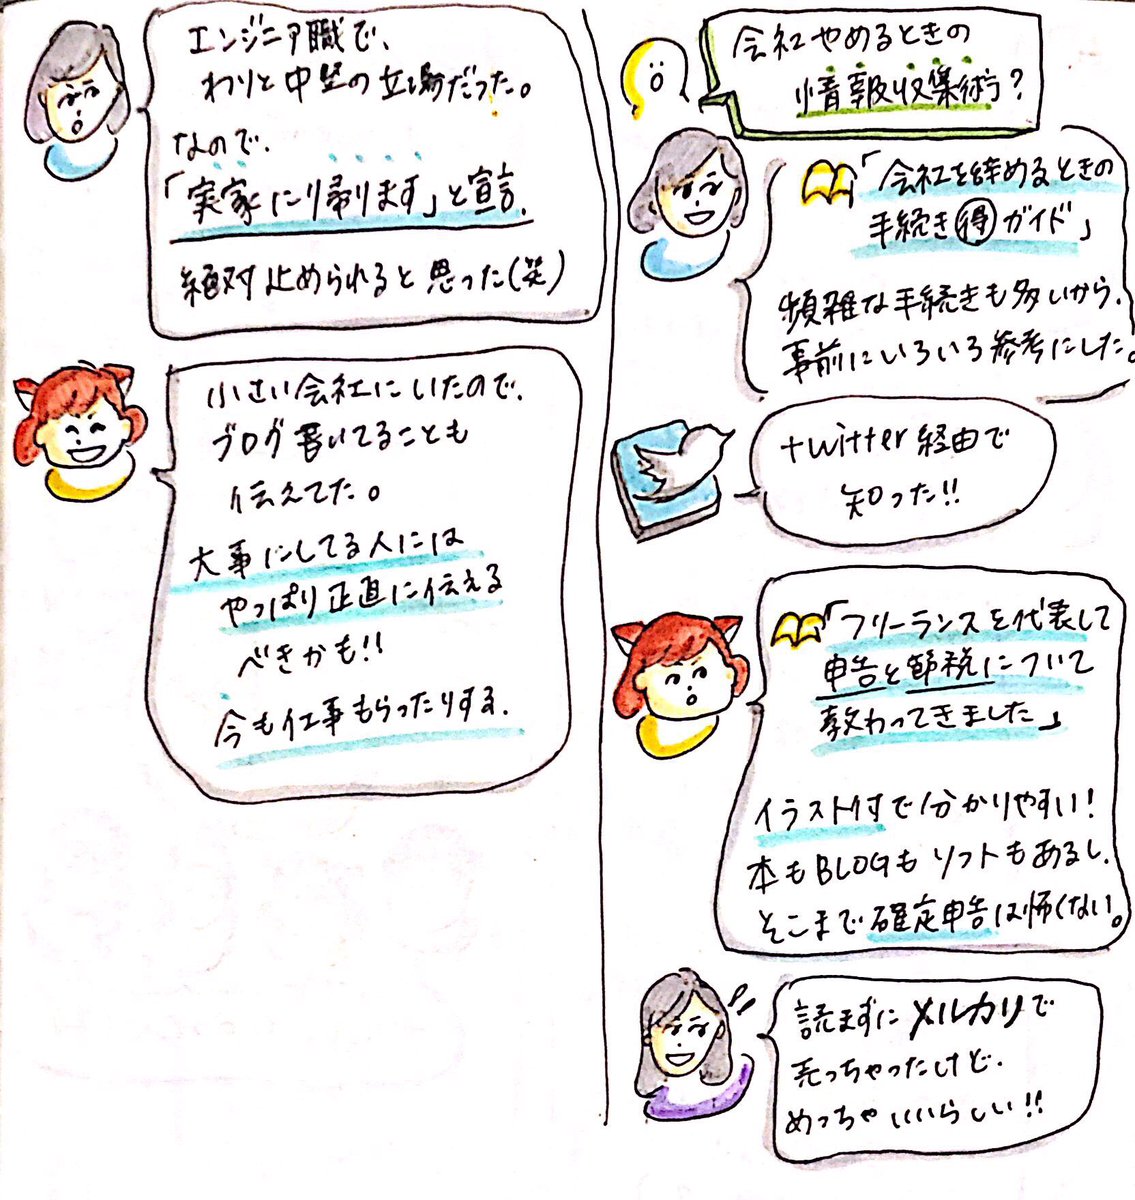 エンジニア職で、
わりと中堅の立場だった。
なので、
「実家に帰ります」と宣言。
絶対止められると思った(笑)
小さい会社にいたので、
ブログ書いてることも
伝えてた。
大事にしてる人には
やっぱり正直に伝える
べきかも!!
今も仕事もらったりする。
会社やめるときの
情報収集術?
「会社を辞めるときの
手続き得ガイド」
煩雑な手続きも多いから、
事前にいろいろ参考にした。
twitter経由で
知った!!
「フリーランスを代表して
申告と節税について
教わってきました」
イラスト付で分かりやすい!
本もBLOGもソフトもあるし、
そこまで確定申告は怖くない。
読まずにメルカリで
売っちゃったけど、
めっちゃいいらしい!!